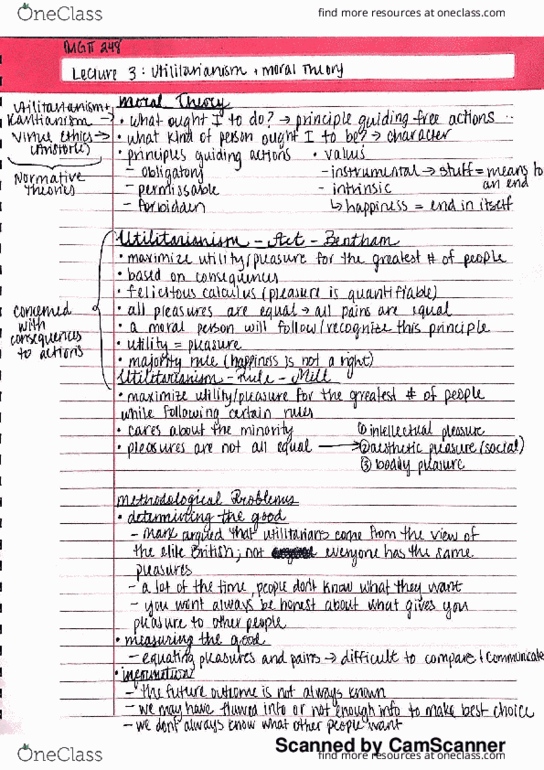 OneClass
find more resources at oneclass.com
MGTF 248
Lecture 3: Utilitarianism + Moral Theory
Utilitarianism +
Kantianism →
Virtue ethics →
(Aristotle)
Normative
Theories
Moral Theory
• what ought I to do? → principle guiding free actions
• what kind of person ought I to be? → character
• principles guiding actions • values
- obligatory - instrumental → stuff = means to
an end
- permissable - intrinsic
- forbidden ↳ happiness = end in itself
Utilitarianism - Act - Bentham
• maximize utility/pleasure for the greatest # of people
• based on consequences
• felicitous calculus (pleasure is quantifiable)
• all pleasures are equal → all pains are equal
• a moral person will follow/recognize this principle
• utility = pleasure
• majority rule (happiness is not a right)
concerned
with
consequences
to actions
Utilitarianism - Rule - Mill
• maximize utility/pleasure for the greatest # of people
while following certain rules
• cares about the minority ① intellectual pleasure
• pleasures are not all equal → ② aesthetic pleasure (social)
③ bodily pleasure
Methodological Problems
• determining the good
- Marx argued that utilitarians come from the view of
the elite British; not everyone has the same
pleasures
- a lot of the time, people don't know what they want
- you wont always be honest about what gives you
pleasure to other people
• measuring the good
- equating pleasures and pains → difficult to compare + communicate
• information
- the future outcome is not always known
- we may have flawed info or not enough info to make best choice
- we dont always know what other people want
Scanned by CamScanner
OneClass
find more resources at oneclass.com